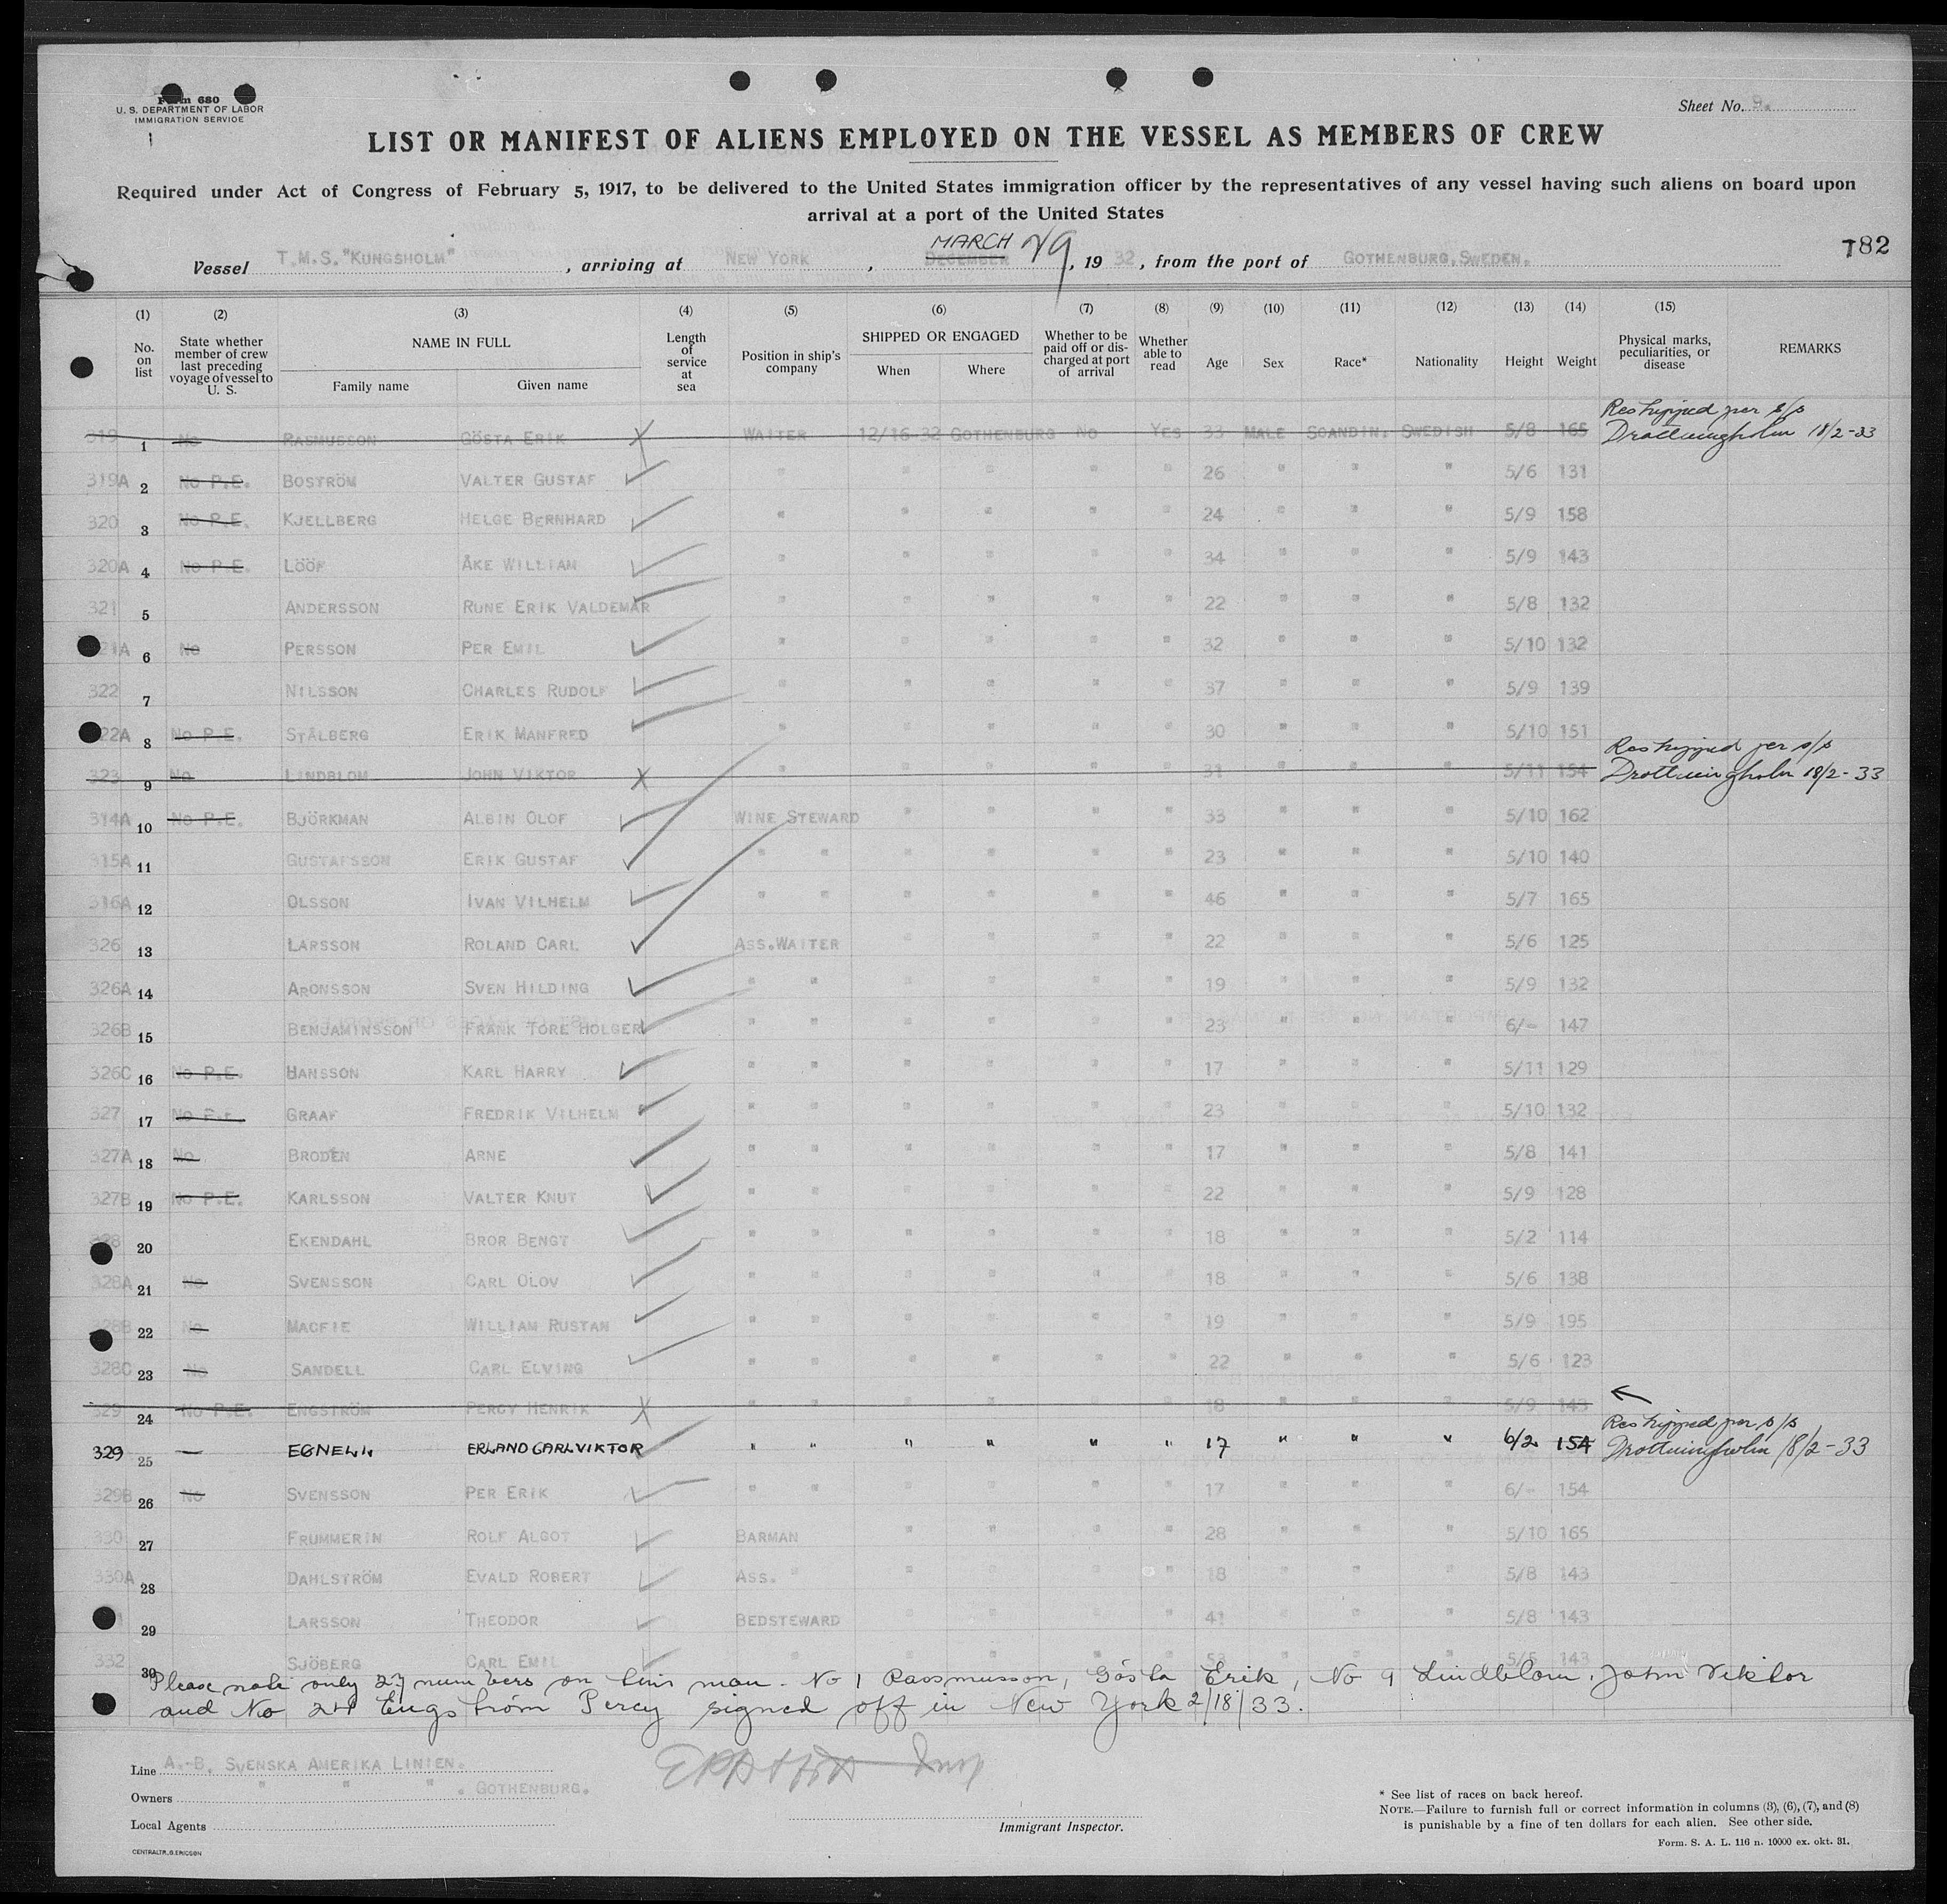 Form 680
U. S. DEPARTMENT OF LABOR
IMMIGRATION SERVICE
Sheet No. 9.
LIST OR MANIFEST OF ALIENS EMPLOYED ON THE VESSEL AS MEMBERS OF CREW
Required under Act of Congress of February 5, 1917, to be delivered to the United States immigration officer by the representatives of any vessel having such aliens on board upon
arrival at a port of the United States
MARCH
Vessel T.M.S. "KUNGSHOLM", arriving at NEW YORK, DECEMBER, 1932, from the port of GOTHENBURG, SWEDEN.
782
(1) (2) (3) (4) (5) (6) (7) (8) (9) (10) (11) (12) (13) (14) (15)
No. on list
State whether member of crew last preceding voyage of vessel to U. S.
NAME IN FULL
Family name
Given name
Length of service at sea
Position in ship's company
SHIPPED OR ENGAGED
When
Where
Whether to be paid off or discharged at port of arrival
Whether able to read
Age
Sex
Race*
Nationality
Height
Weight
Physical marks, peculiarities, or disease
REMARKS
319 1 No RASMUSSON GÖSTA ERIK X WAITER 12/16 32 GOTHENBURG NO YES 33 MALE SCANDIN. SWEDISH 5/8 165 Reshipped per s/s Drottningholm 18/2-33
319A 2 No P.E. BOSTRÖM VALTER GUSTAF " " " " " 26 " " " 5/6 131
320 3 No P.E. KJELLBERG HELGE BERNHARD " " " " " 24 " " " 5/9 158
320A 4 No P.E. LÖÖF ÅKE WILLIAM " " " " " 34 " " " 5/9 143
321 5 ANDERSSON RUNE ERIK VALDEMAR " " " " " 22 " " " 5/8 132
21A 6 No PERSSON PER EMIL " " " " " 32 " " " 5/10 132
322 7 NILSSON CHARLES RUDOLF " " " " " 37 " " " 5/9 139
22A 8 No P.E. STÅLBERG ERIK MANFRED " " " " " 30 " " " 5/10 151
323 9 No LINDBLOM JOHN VIKTOR X " " " " " 31 " " " 5/11 154 Reshipped per s/s Drottningholm 18/2-33
314A 10 No P.E. BJÖRKMAN ALBIN OLOF WINE STEWARD " " " " 33 " " " 5/10 162
315A 11 GUSTAFSSON ERIK GUSTAF " " " " " " 23 " " " 5/10 140
316A 12 OLSSON IVAN VILHELM " " " " " " 46 " " " 5/7 165
326 13 LARSSON ROLAND CARL ASS.WAITER " " " " 22 " " " 5/6 125
326A 14 ARONSSON SVEN HILDING " " " " " " 19 " " " 5/9 132
326B 15 BENJAMINSSON FRANK TORE HOLGER " " " " " " 23 " " " 6/- 147
326C 16 No P.E. HANSSON KARL HARRY " " " " " " 17 " " " 5/11 129
327 17 No P.E. GRAAF FREDRIK VILHELM " " " " " " 23 " " " 5/10 132
327A 18 No BRODÉN ARNE " " " " " " 17 " " " 5/8 141
327B 19 No P.E. KARLSSON VALTER KNUT " " " " " " 22 " " " 5/9 128
328 20 EKENDAHL BROR BENGT " " " " " " 18 " " " 5/2 114
328A 21 No SVENSSON CARL OLOV " " " " " " 18 " " " 5/6 138
328B 22 No MACFIE WILLIAM RUSTAN " " " " " " 19 " " " 5/9 195
328C 23 No SANDELL CARL ELVING " " " " " " 22 " " " 5/6 123
329 24 No P.E. ENGSTRÖM PERCY HENRIK X " " " " " " 18 " " " 5/9 143 Reshipped per s/s
329 25 — EGNELL ERLAND CARL VIKTOR " " " " " " 17 " " " 6/2 154 Drottningholm 18/2-33
329B 26 No SVENSSON PER ERIK " " " " " " 17 " " " 6/- 154
330 27 FRUMMERIN ROLF ALGOT BARMAN " " " " 28 " " " 5/10 165
330A 28 DAHLSTRÖM EVALD ROBERT ASS. " " " " " 18 " " " 5/8 143
29 LARSSON THEODOR BEDSTEWARD " " " " 41 " " " 5/8 143
332 30 SJÖBERG CARL EMIL " " " " " " " " 5/8 143
Please note only 27 numbers on this man. No 1 Rassmusson, Gösta Erik, No 9 Lindblom, John Viktor
and No 24 Engström Percy signed off in New York 2/18/33.
Line A.-B. SVENSKA AMERIKA LINIEN.
Owners " " " . GOTHENBURG.
Local Agents
Immigrant Inspector.
CENTRALTR., G. ERICSON
* See list of races on back hereof.
NOTE.—Failure to furnish full or correct information in columns (3), (6), (7), and (8)
is punishable by a fine of ten dollars for each alien. See other side.
Form. S. A. L. 116 n. 10000 ex. okt. 31.